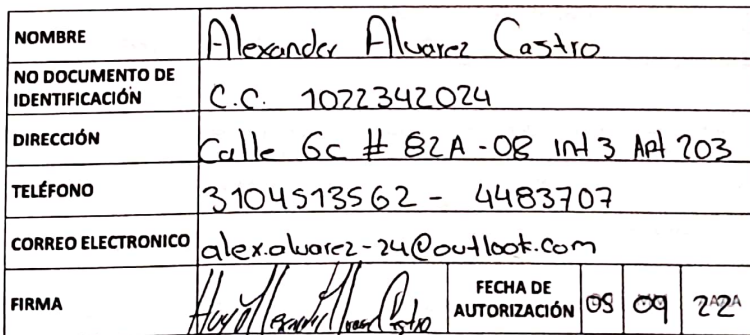 NOMBRE Alexander Alvarez Castro
NO DOCUMENTO DE
IDENTIFICACIÓN C.C. 1022342024
DIRECCIÓN Calle 6c # 82A-08 Int 3 Apt 203
TELÉFONO 3104513562 - 4483707
CORREO ELECTRONICO alex.alvarez-24@outlook.com
FIRMA
FECHA DE
AUTORIZACIÓN 09 22